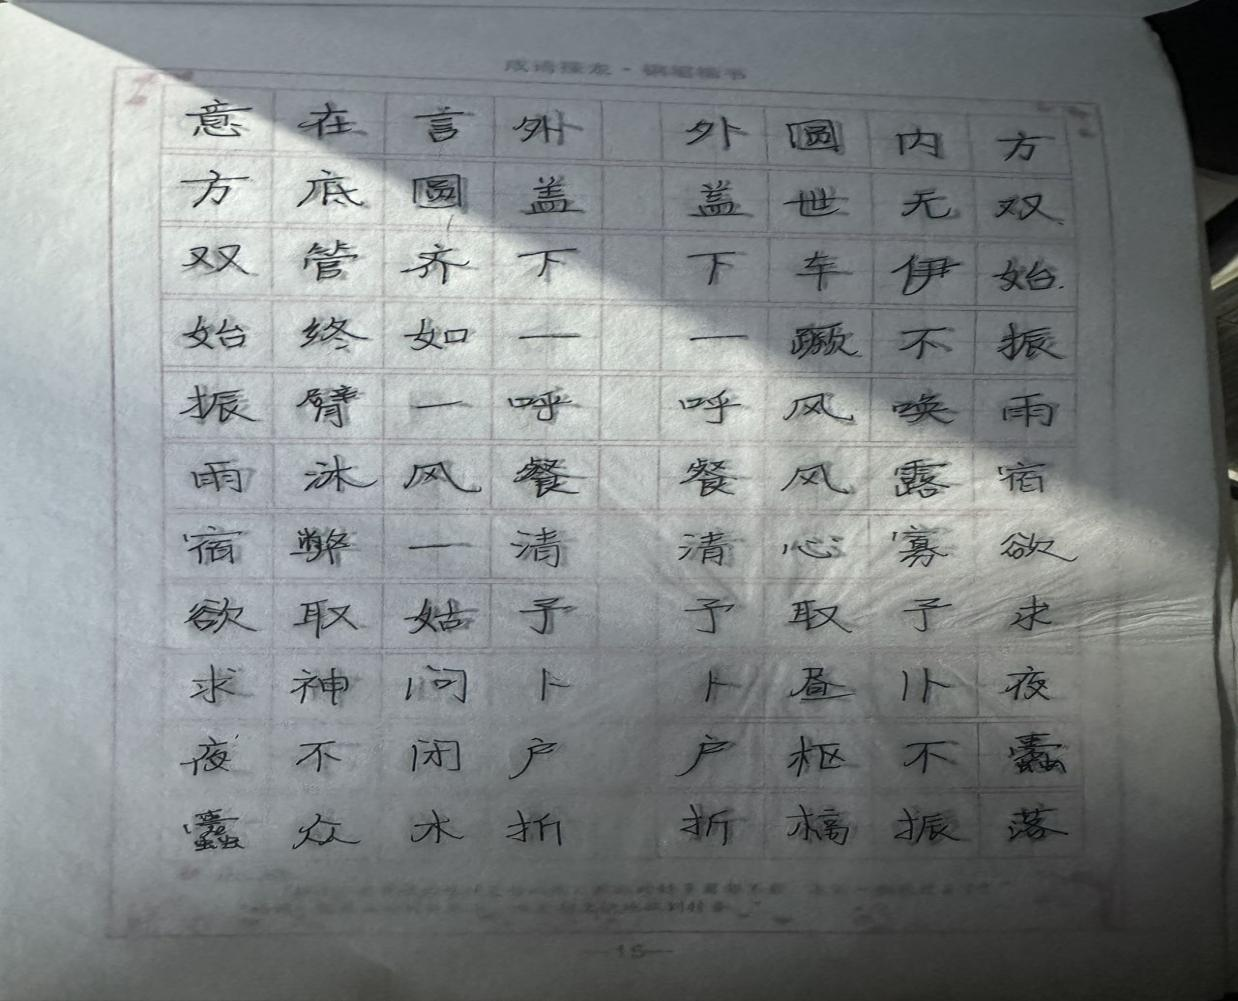 成语接龙·钢笔楷书
意在言外 外圆内方
方底圆盖 盖世无双
双管齐下 下车伊始
始终如一 一蹶不振
振臂一呼 呼风唤雨
雨沐风餐 餐风露宿
宿弊一清 清心寡欲
欲取姑予 予取予求
求神问卜 卜昼卜夜
夜不闭户 户枢不蠹
蠹众木折 折槁振落
—15—